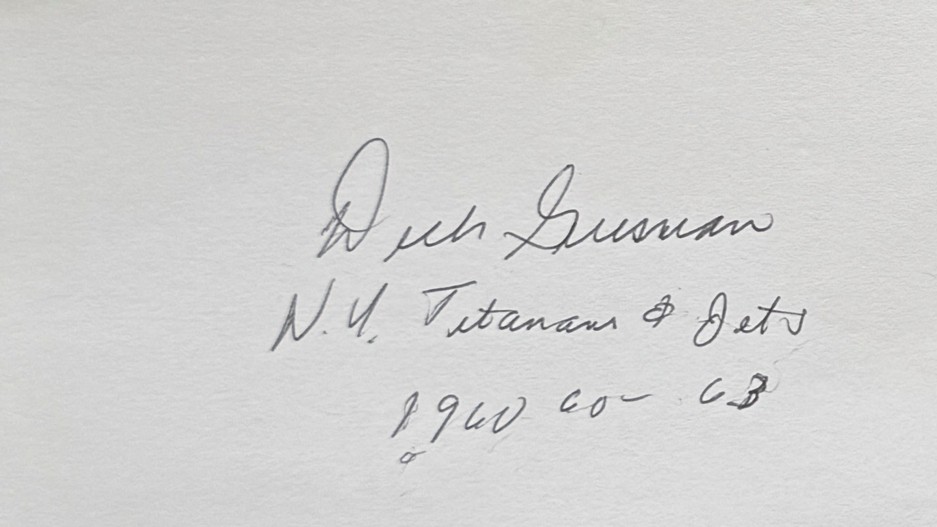 Dick Guesman
N.Y. Titanans & Jets
1960 60- 63